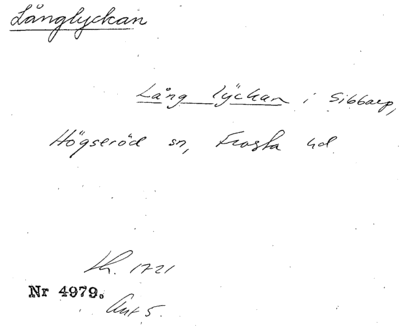 Långlyckan
Lång lÿckan i Sibbarp,
Högseröd sn, Frosta hd
Lh. 1721
Nr 4979.
Akt 5.